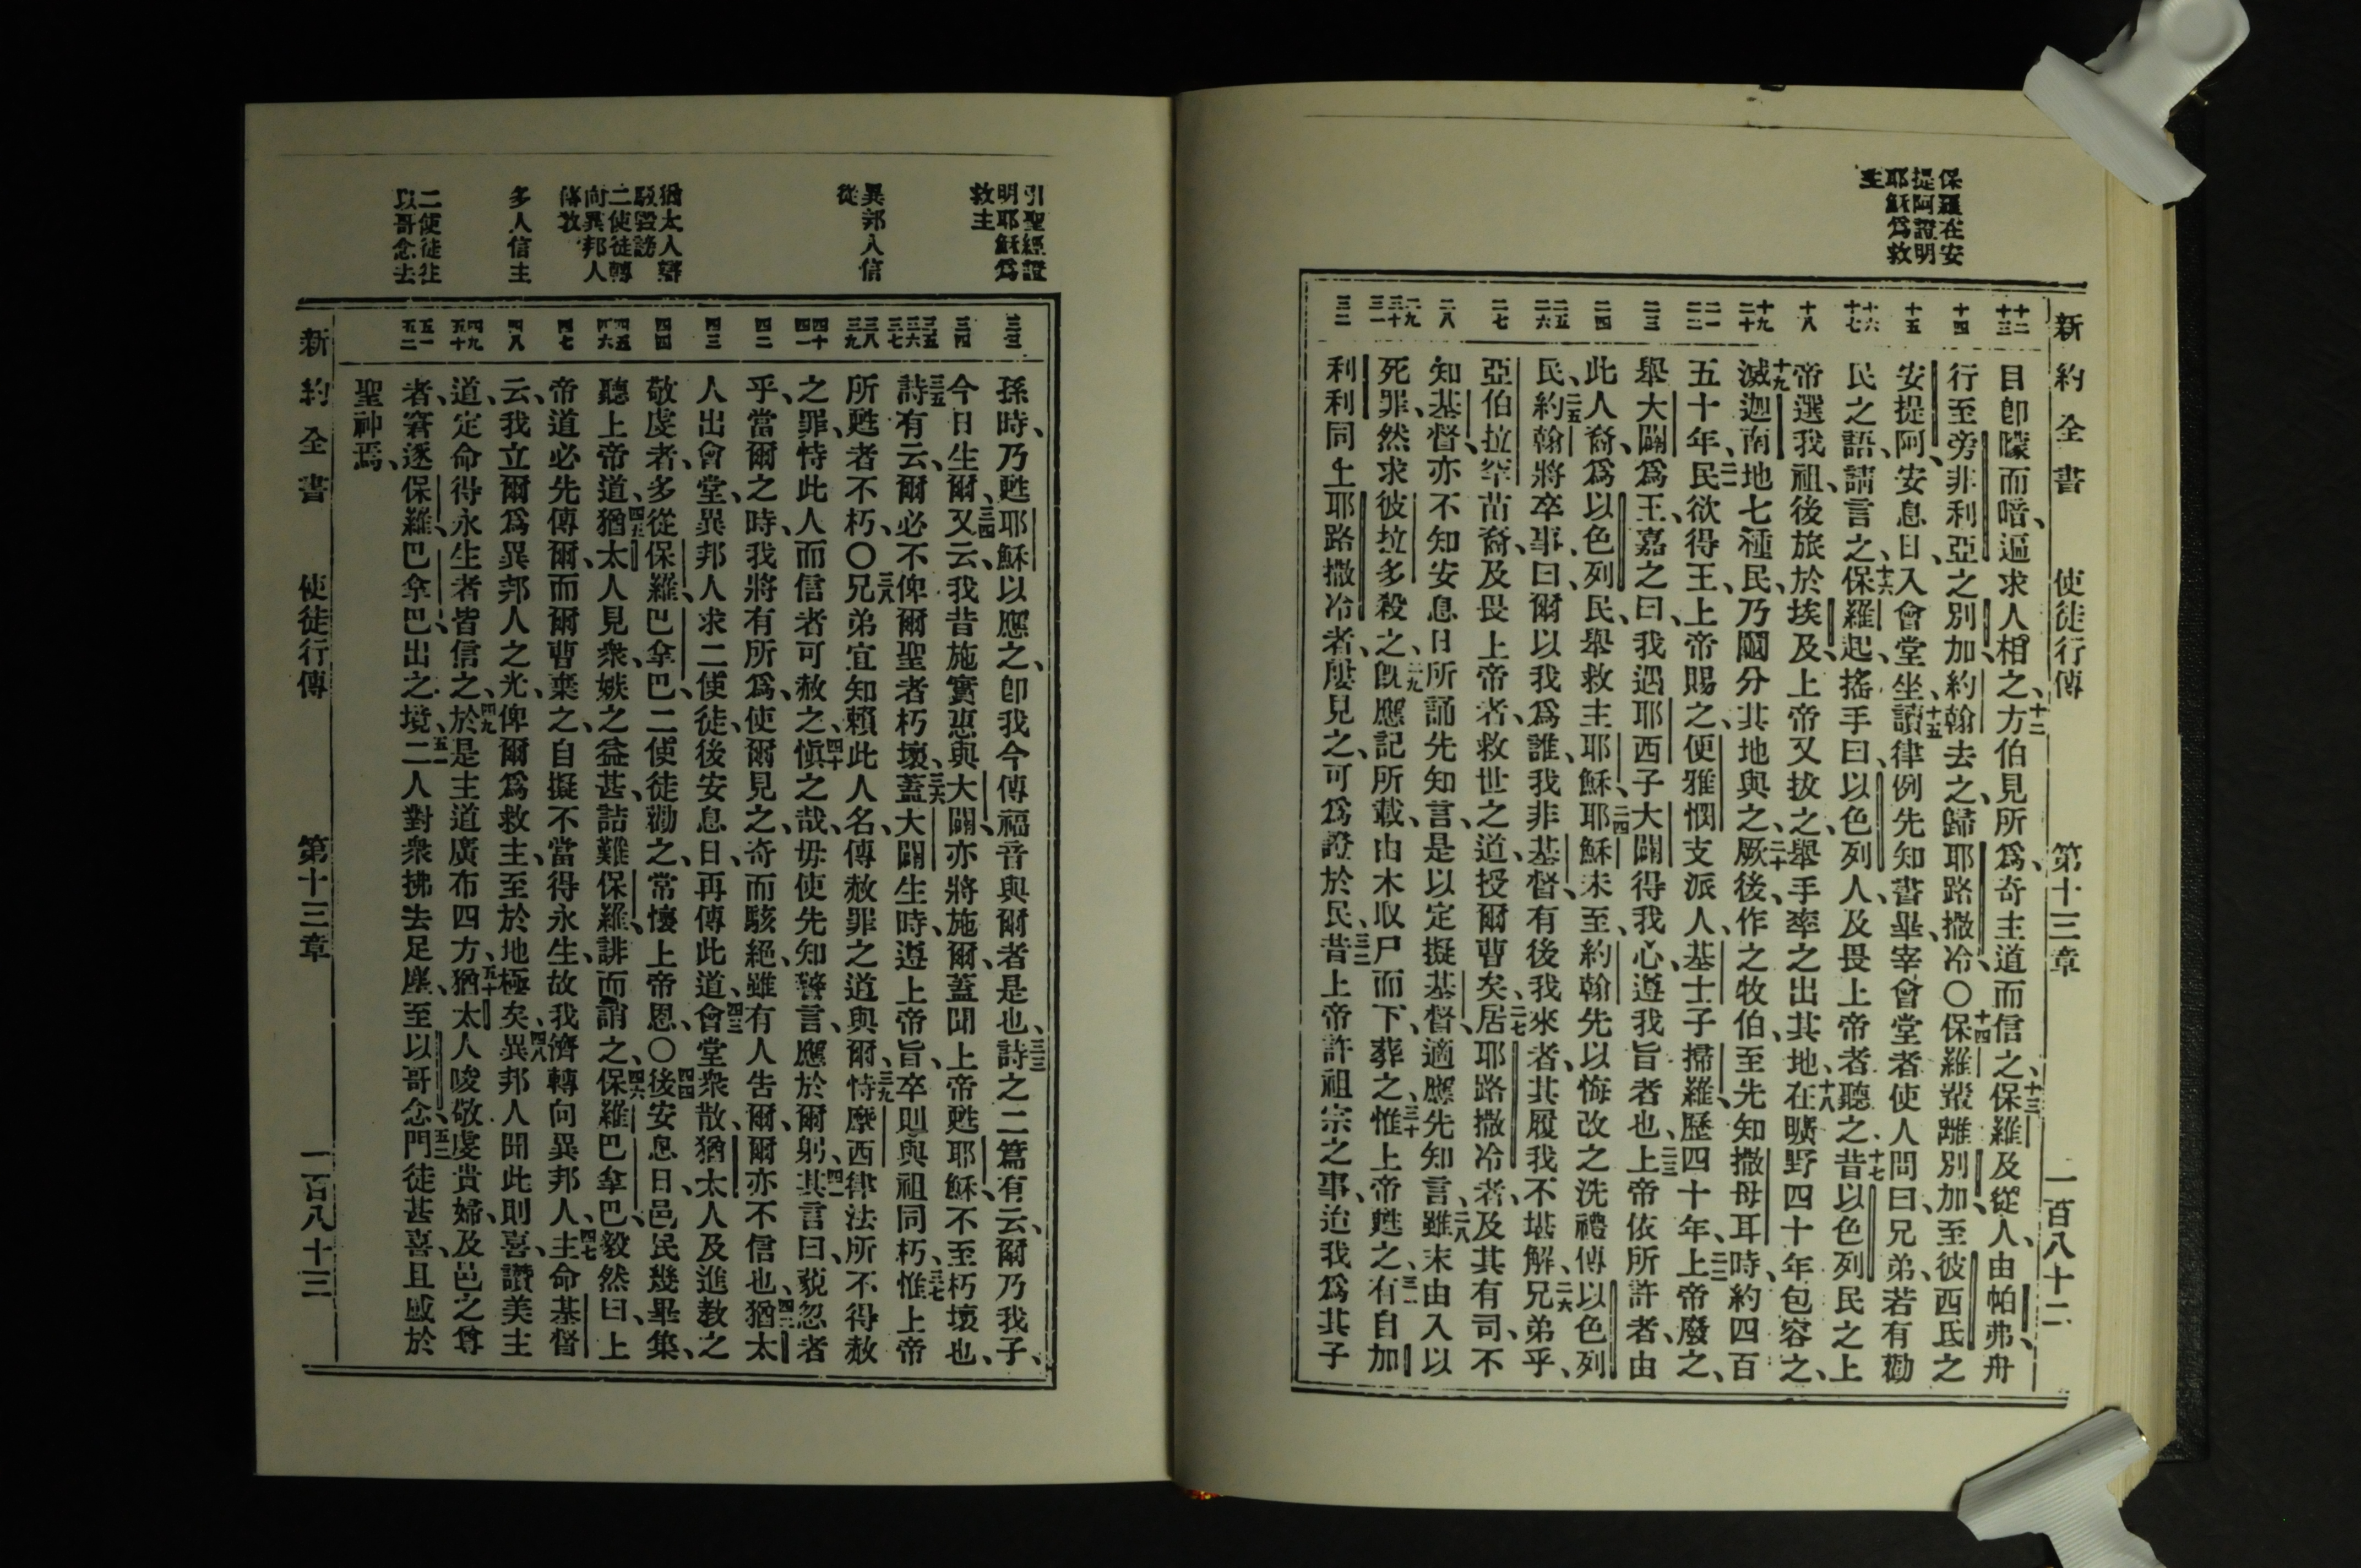 新約全書 使徒行傳 第十三章 一百八十二
保羅在安
提阿證明
耶穌爲救
主
十二 十三
十四
十五
十六 十七
十八
十九 二十
二一 二二
二三
二四
二五 二六
二七
二八
二九 三十 三一
三二
目卽矇而暗、遍求人相之、十二方伯見所爲、奇主道而信之、十三保羅及從人、由帕弗、舟
行至旁非利亞之別加、約翰去之、歸耶路撒冷、〇十四保羅衆離別加、至彼西氐之
安提阿、安息日、入會堂坐、十五讀律例先知書畢、宰會堂者使人問曰、兄弟、若有勸
民之語、請言之、十六保羅起、搖手曰、以色列人及畏上帝者聽之、十七昔以色列民之上
帝選我祖、後旅於埃及、上帝又拔之、舉手率之出其地、十八在曠野四十年包容之、
十九滅迦南地七種民、乃鬮分其地與之、二十厥後、作之牧伯、至先知撒母耳時、約四百
五十年、二一民欲得王、上帝賜之、便雅憫支派人、基士子掃羅、歷四十年、二二上帝廢之、
舉大闢爲王、嘉之曰、我遇耶西子大闢得我心、遵我旨者也、二三上帝依所許者、由
此人裔、爲以色列民、舉救主耶穌、二四耶穌未至、約翰先以悔改之洗禮傳以色列
民、二五約翰將卒事、曰、爾以我爲誰、我非基督、有後我來者、其履我不堪解、二六兄弟乎、
亞伯拉罕苗裔、及畏上帝者、救世之道、授爾曹矣、二七居耶路撒冷者、及其有司、不
知基督、亦不知安息日所誦先知言、是以定擬基督、適應先知言、二八雖末由入以
死罪、然求彼拉多殺之、二九旣應記所載、由木取尸而下、葬之、三十惟上帝甦之、三一有自加
利利同上耶路撒冷者、屢見之、可爲證於民、三二昔上帝許祖宗之事、迨我爲其子
引聖經證
明耶穌爲
救主
異邦人信
從
猶太人辯
駁毀謗
二使徒轉
向異邦人
傳敎
多人信主
二使徒往
以哥念去
三三
三四
三五 三六 三七
三八 三九
四十 四一
四二
四三
四四
四五 四六
四七
四八
四九 五十
五一 五二
孫時、乃甦耶穌以應之、卽我今傳福音與爾者是也、三三詩之二篇有云、爾乃我子、
今日生爾、三四又云、我昔施實惠與大闢、亦將施爾、蓋聞上帝甦耶穌、不至朽壞也、
三五詩有云、爾必不俾爾聖者朽壞、三六蓋大闢生時、遵上帝旨、卒則與祖同朽、三七惟上帝
所甦者不朽、〇三八兄弟宜知賴此人名、傳赦罪之道與爾、三九恃摩西律法所不得赦
之罪、恃此人而信者可赦之、四十愼之哉、毋使先知警言、應於爾躬、四一其言曰、藐忽者
乎、當爾之時、我將有所爲、使爾見之、奇而駭絕、雖有人告爾、爾亦不信也、四二猶太
人出會堂、異邦人求二使徒、後安息日、再傳此道、四三會堂衆散、猶太人及進敎之
敬虔者、多從保羅、巴拿巴、二使徒勸之、常懷上帝恩、〇四四後安息日、邑民幾畢集、
聽上帝道、四五猶太人見衆、嫉之益甚、詰難保羅、誹而誚之、四六保羅巴拿巴、毅然曰、上
帝道必先傳爾、而爾曹棄之、自擬不當得永生、故我儕轉向異邦人、四七主命基督
云、我立爾爲異邦人之光、俾爾爲救主、至於地極矣、四八異邦人聞此則喜、讚美主
道、定命得永生者皆信之、四九於是主道廣布四方、五十猶太人唆敬虔貴婦、及邑之尊
者、窘逐保羅、巴拿巴、出之境、五一二人對衆拂去足塵、至以哥念、五二門徒甚喜、且感於
聖神焉、
新約全書 使徒行傳 第十三章 一百八十三